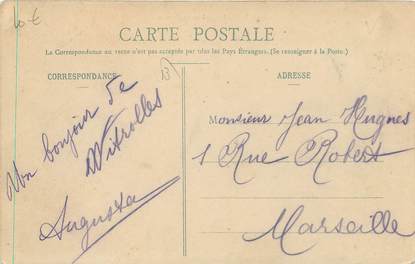 10 €
CARTE POSTALE
La Correspondance au recto n'est pas acceptée par tous les Pays Étrangers. (Se renseigner à la Poste.)
CORRESPONDANCE
13
ADRESSE
Un bonjour de
Vitrolles
Augusta
Monsieur Jean Hugues
1 Rue Robert
Marseille